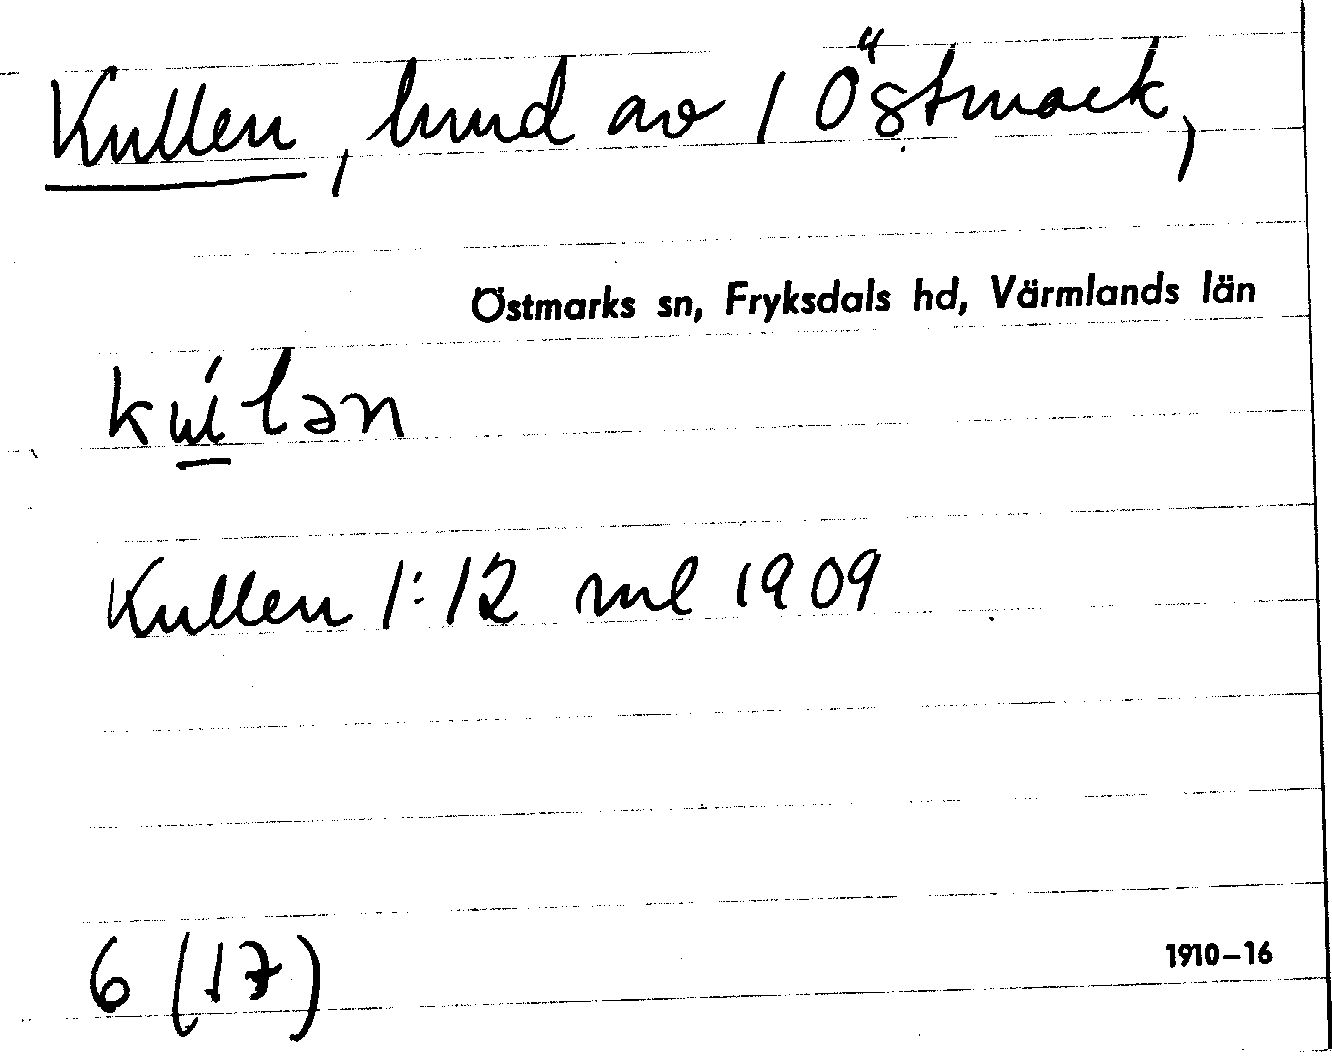 Kullen, hmd av 1 Östmark,
Östmarks sn, Fryksdals hd, Värmlands län
Kullen 1:12 ml 1909
6 (17)
1910–16